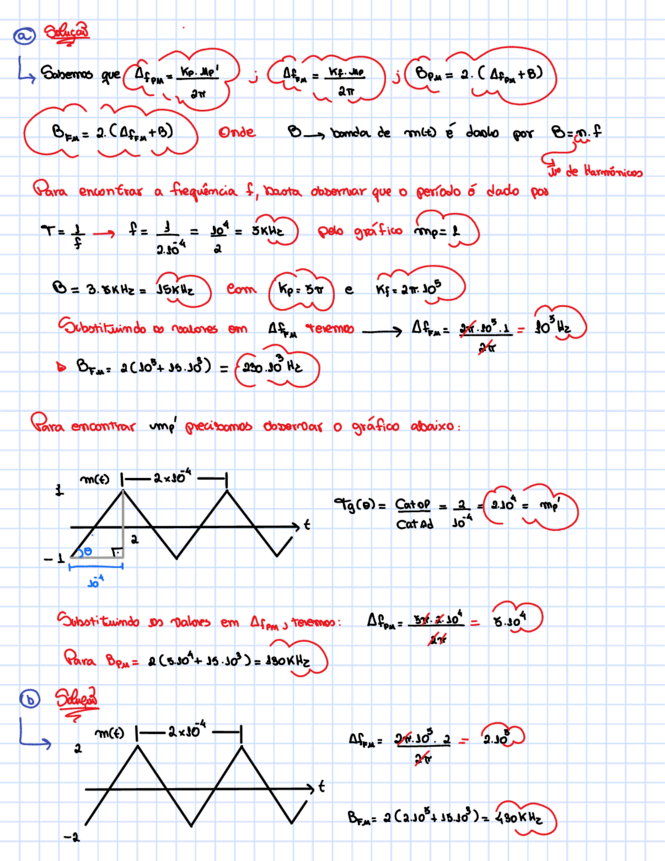 a) Solução
Sabemos que Δf_PM = Kp.mp'/2π ; Δf_FM = Kf.mp/2π ; B_PM = 2.(Δf_PM+B)
B_FM = 2.(Δf_FM+B) Onde B → banda de m(t) é dado por B=n.f
nº de Harmônicos
Para encontrar a frequência f, basta observar que o período é dado por
T = 1/f → f = 1/2.10^-4 = 10^4/2 = 5KHz pelo gráfico mp=1
B = 3.5KHz = 15KHz com Kp = 5π e Kf = 2π.10^5
Substituindo os valores em Δf_FM teremos → Δf_FM = 2π.10^5.1/2π = 10^5 Hz
B_FM = 2(10^5 + 15.10^3) = 230.10^3 Hz
Para encontrar mp' precisamos observar o gráfico abaixo:
m(t) |— 2×10^-4 —|
1
t
Tg(θ) = Cat op/Cat Ad = 2/10^-4 = 2.10^4 = mp'
2
-1 θ
10^-4
Substituindo os valores em Δf_PM, teremos: Δf_PM = 5π.2.10^4/2π = 5.10^4
Para B_PM = 2(5.10^4 + 15.10^3) = 130KHz
b) Solução
m(t) |— 2×10^-4 —|
2
Δf_FM = 2π.10^5.2/2π = 2.10^5
t
B_FM = 2(2.10^5 + 15.10^3) = 430KHz
-2